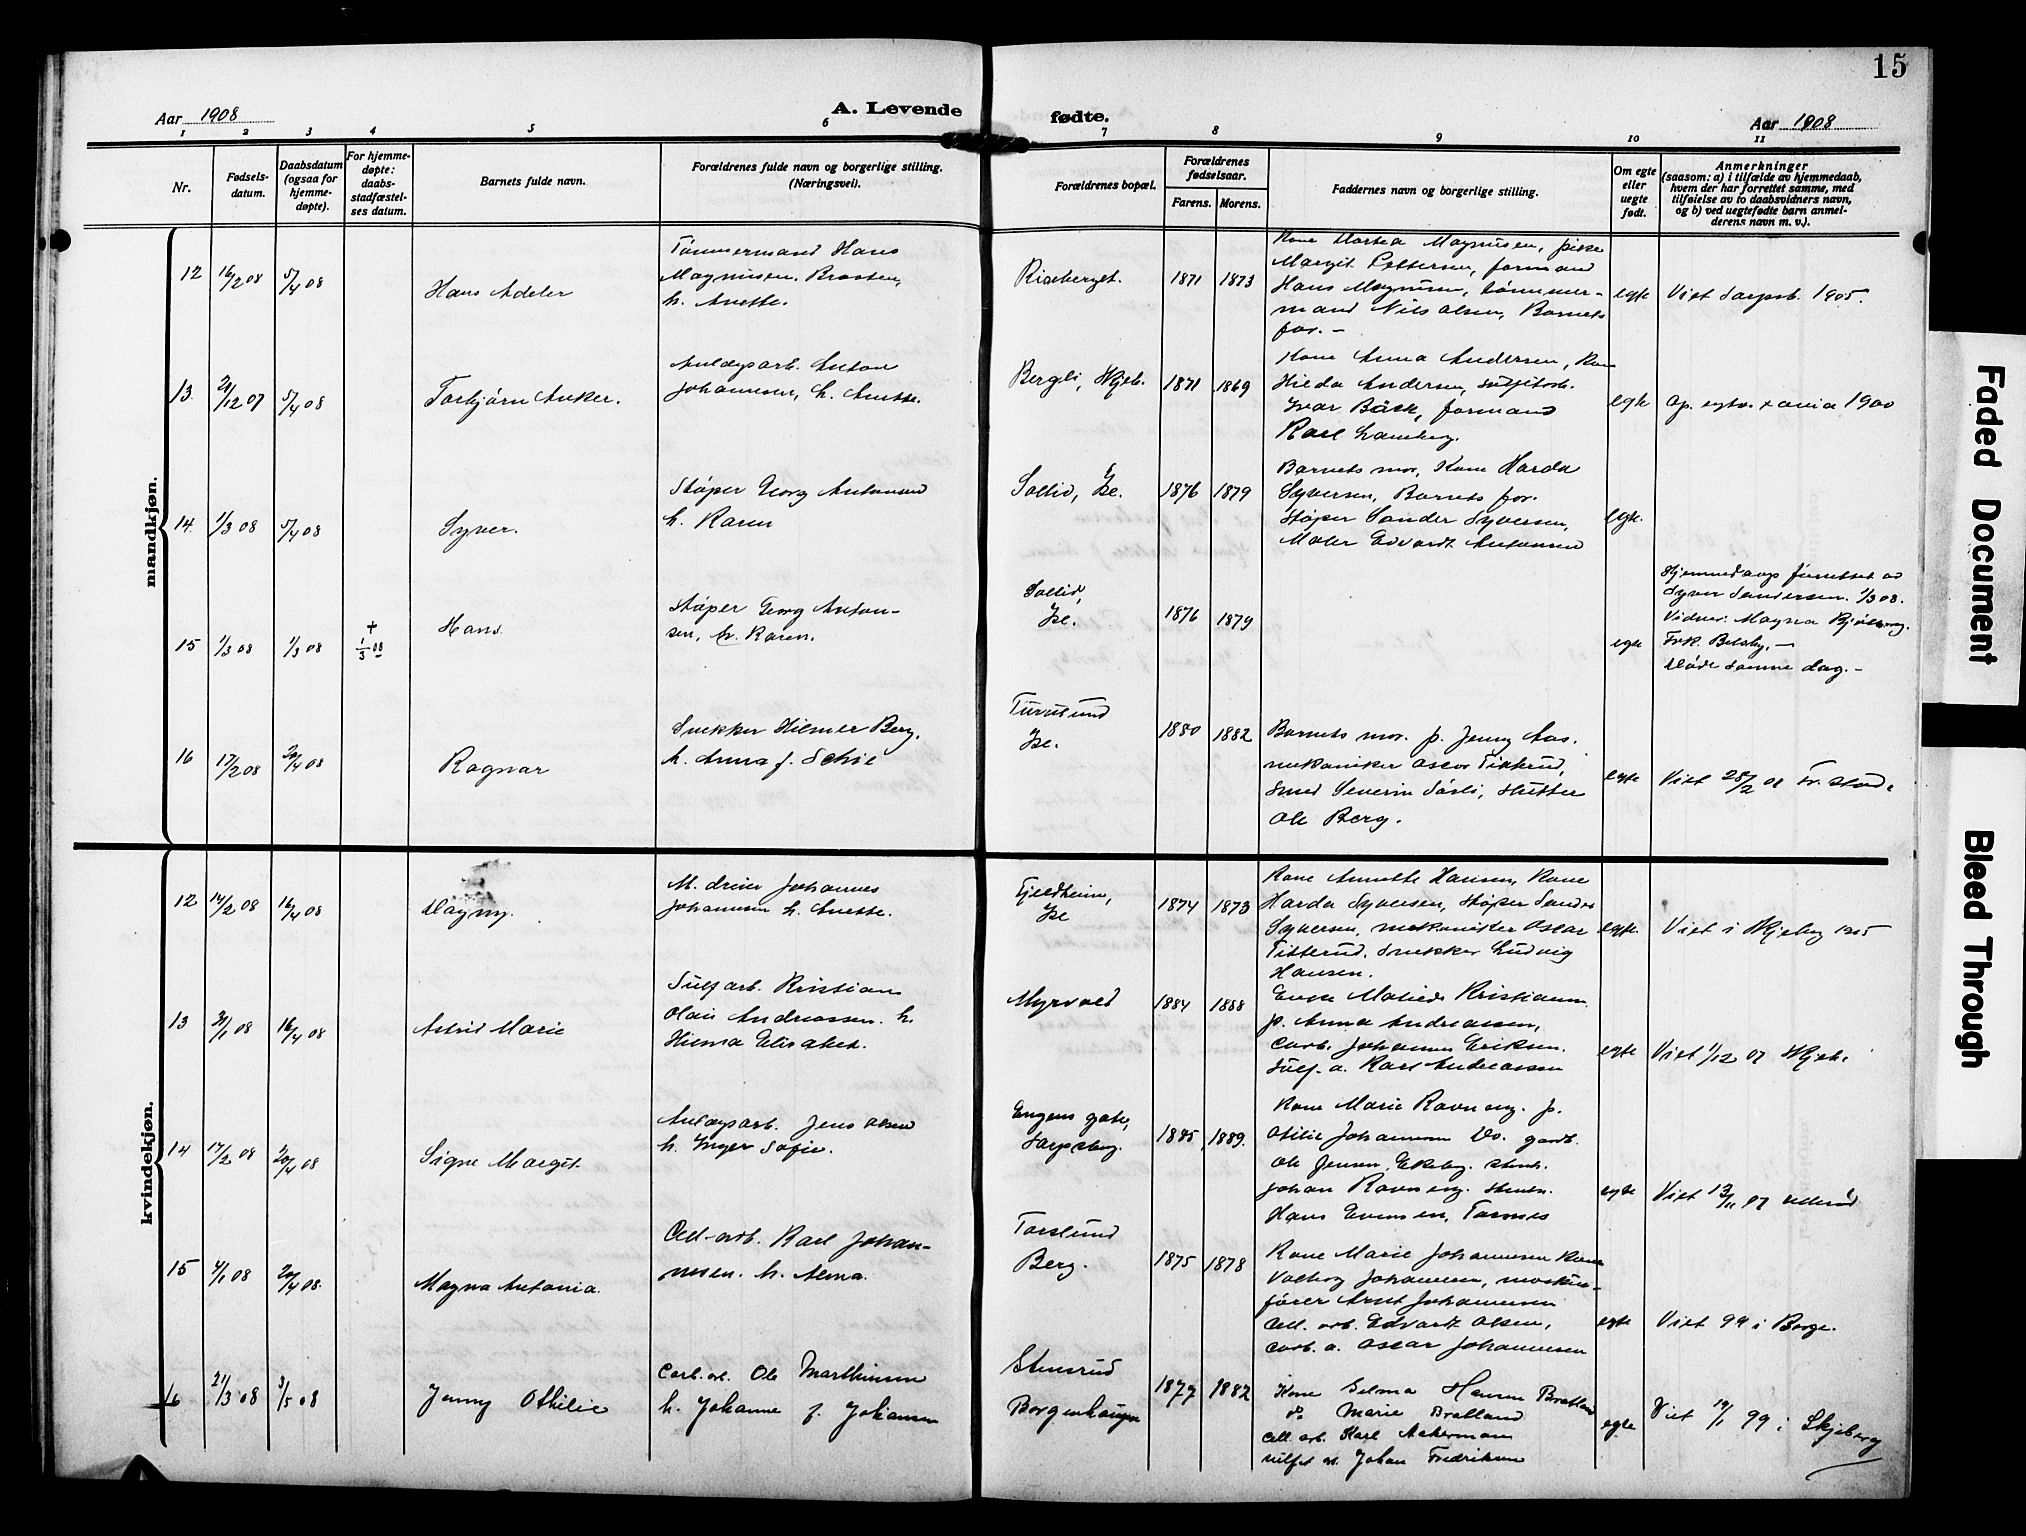 15
Aar 1908
A. Levende
fødte.
Aar 1908
1 2 3 4 5 6 7 8 9 10 11
Nr.
Fødsels-
datum.
Daabsdatum
(ogsaa for
hjemme-
døpte).
For hjemme-
døpte:
daabs-
stadfæstel-
ses datum.
Barnets fulde navn.
Forældrenes fulde navn og borgerlige stilling.
(Næringsvei).
Forældrenes bopæl.
Forældrenes
fødselsaar.
Farens. Morens.
Faddernes navn og borgerlige stilling.
Om egte
eller
uegte
født.
Anmerkninger
(saasom: a) i tilfælde av hjemmedaab,
hvem der har forrettet samme, med
tilføielse av to daabsvidners navn,
og b) ved uegtefødte barn anmel-
derens navn m. v.).
mandkjøn.
12
16/2 08
5/4 08
Hans Adeler
Tømmermand Hans
Magnusen. Braaten,
h. Anette.
1871 1873
Kone Dortea Magnusen, pike
Margit Pettersen, formand
Hans Magnusen, tømmer-
mand Nils Olsen, Barnets
far. –
egte
Viet Sarpsb. 1905.
13
5/4 08
Torbjørn Anker.
Anlægsarb. Anton
Johannesen, h. Anette.
Bergli, Skjeb.
1871 1869
Kone Anna Andersen, Kone
Hilda Andersen,
Ivar Bäck, formand
Karl
egte
1900
14
1/3 08
5/4 08
Syver.
Støper Georg Antonsen
h. Karen
Sollid, Ise.
1876 1879
Barnets mor, Kone Harda
Syversen, Barnets far.
Støper Sander Syversen,
Maler Edvardt Antonsen
egte.
15
1/3 08
1/3 08
+
1/3 08
Hans.
Støper Georg Anton-
sen, h. Karen.
Sollid,
Ise.
1876 1879
egte
Hjemmedaap forrettet av
Syver Sandersen. 1/3 08.
Vidner: Magna
Frk.
Døde samme dag. –
16
17/2 08
20/4 08
Ragnar
Snekker Hilmer Berg.
h. Anna f. Schie
Ise.
1880 1882
Barnets mor. p. Jenny Aas.
mekaniker Oscar Titterud,
Smed Severin Sørli,
Ole Berg.
egte
Viet 28/2 08 Fr.stad.
kvindekjøn.
12
14/2 08
16/4 08
Dagny.
M. driver Johannes
Johannesen h. Anette.
Fjeldheim,
Ise
1874 1873
Kone Annette Hansen, Kone
Harda Syversen, Støper Sander
Syversen, mekaniker Oscar
Titterud. Snekker Ludvig
Hansen.
egte.
Viet i Skjeberg
13
31/1 08
16/4 08
Astrid Marie
Sulf arb. Kristian
Olai Andreassen. h.
Hilma Elisabet.
Myrvold
1884 1888
Enke Matilde Kristiansen
p. Anna Andreassen,
Carb. Johannes Eriksen.
Sulf. a. Karl Andreassen
egte
Viet 1/12 07 Skjeb.
14
17/2 08
20/4 08
Signe Margit.
Anlægsarb. Jens Olsen
h. Inger Sofie.
Engens gate,
Sarpsborg.
1885, 1889.
Kone Marie Ravneng. p.
Otilie Johannesen Do. gaardb.
Ole Jensen, Ekeberg.
Johan Ravneng.
Hans Evensen, Tornes
egte
Viet 13/11 07
15
4/1 08
20/4 08.
Magna Antonia.
Cell-arb. Karl Johan-
nesen. h. Alma.
Torslund
Berg.
1875 1878
Kone Marie Johannesen Kone
Valborg Johannesen, maskin-
fører Arnt Johannesen
Cell. arb. Edvardt Olsen,
Carb. a. Oscar Johannesen
egte
Viet 99 i Borge.
16
21/3 08
3/5 08
Jenny Othilie
Carb. arb. Ole Marthinsen
h. Johanne f. Johansen
Stensrud
Borgenhaugen
1877 1882
Kone Selma Hansen Bratland
do Marie Bratland
Cell. arb. Karl Ackermann
sulfit a. Johan Fredriksen
egte
Viet 19/1 99 i Skjeberg
Faded Document
Bleed Through